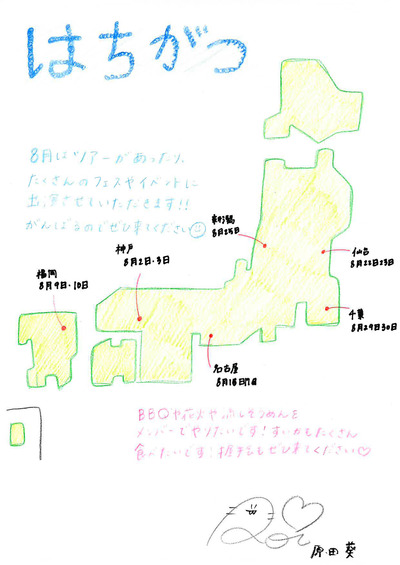 はちがつ
8月はツアーがあったり、
たくさんのフェスやイベントに
出演させていただきます!!
がんばるのでぜひ来てください
新潟
8月25日
仙台
8月22日23日
神戸
8月2日・3日
福岡
8月9日・10日
千葉
8月29日30日
名古屋
8月16日17日
BBQや花火や流しそうめんを
メンバーでやりたいです!すいかもたくさん
食べたいです!握手会もぜひ来てください♡
原田葵